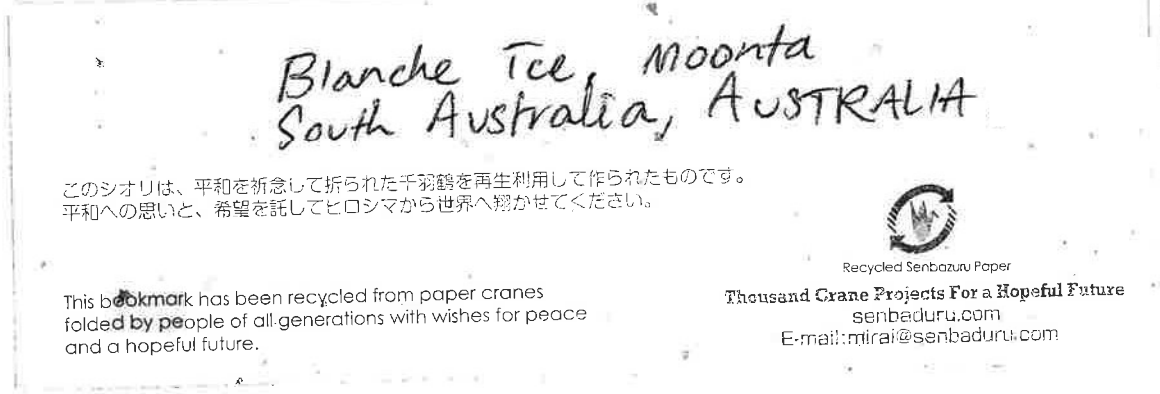 Blanche Tce, Moonta
South Australia, AUSTRALIA
このシオリは、平和を祈念して折られた千羽鶴を再生利用して作られたものです。
平和への思いと、希望を託してヒロシマから世界へ翔かせてください。
Recycled Senbazuru Paper
This bookmark has been recycled from paper cranes
folded by people of all generations with wishes for peace
and a hopeful future.
Thousand Crane Projects For a Hopeful Future
senbaduru.com
E-mail:mirai@senbaduru.com